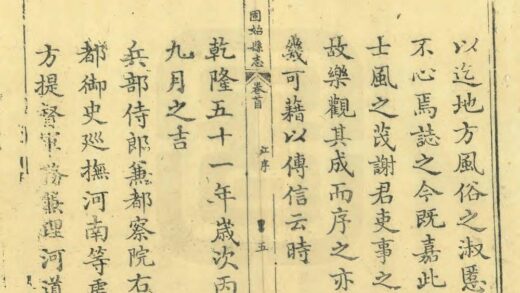 以迄地方風俗之淑慝
不心焉誌之今既嘉此
士風之茂謝君吏事之
故樂觀其成而序之亦
幾可藉以傳信云時
固始縣志 卷首 江序 五
乾隆五十一年歲次丙
九月之吉
兵部侍郎兼都察院右
都御史巡撫河南等處
方提督軍務兼理河道